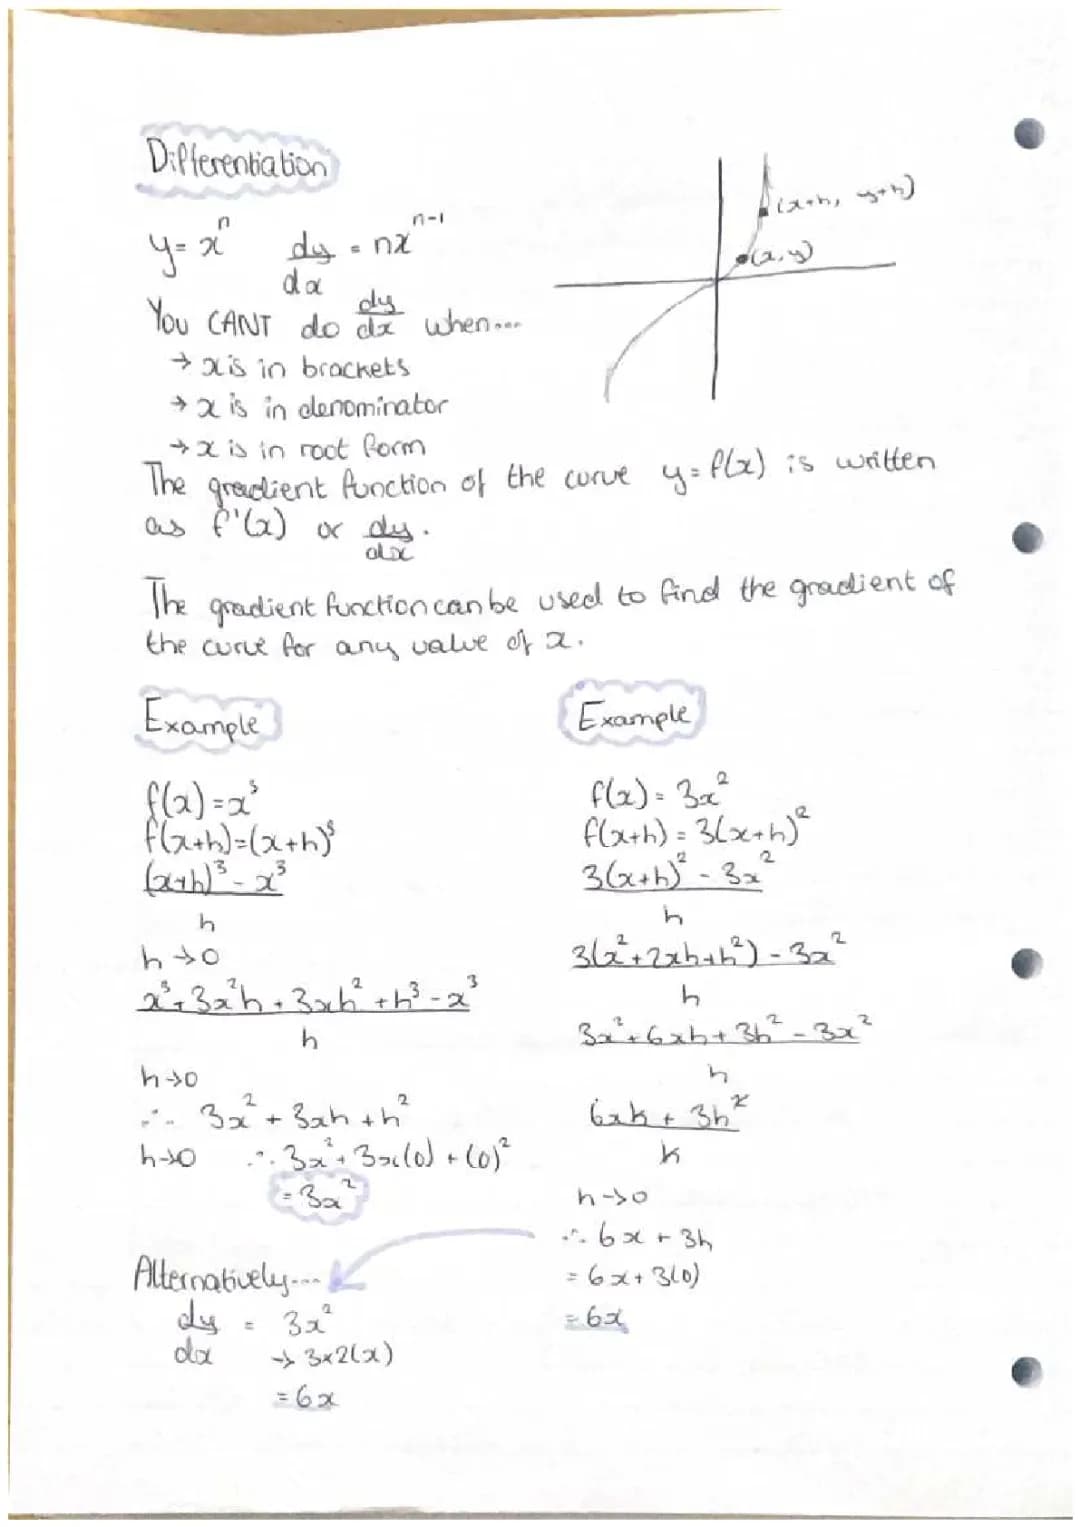 Differentiation
y = xⁿ   dy/dx = nxⁿ⁻¹
(x+h, y+h)
(x, y)
You CANT do dy/dx when...
→ x is in brackets
→ x is in denominator
→ x is in root form
The gradient function of the curve y = f(x) is written
as f'(x) or dy/dx.
The gradient function can be used to find the gradient of
the curve for any value of x.
Example
f(x) = x³
f(x+h) = (x+h)³
(x+h)³ - x³
h
h → 0
x³ + 3x²h + 3xh² + h³ - x³
h
h → 0
∴ 3x² + 3xh + h²
h → 0 ∴ 3x² + 3x(0) + (0)²
= 3x²
Alternatively...
dy/dx = 3x²
→ 3×2(x)
= 6x
Example
f(x) = 3x²
f(x+h) = 3(x+h)²
3(x+h)² - 3x²
h
3(x² + 2xh + h²) - 3x²
h
3x² + 6xh + 3h² - 3x²
h
6xh + 3h²
h
h → 0
∴ 6x + 3h
= 6x + 3(0)
= 6x